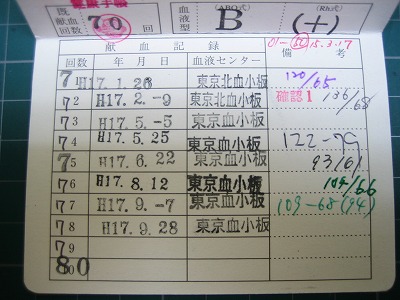 献血手帳
既献血回数 70 回 血液型 (ABO式) B (Rh式) (+)
01-50 15.3.17
献血記録
年月日 血液センター 備考
71 H17.1.26 東京北血小板 120/65
72 H17.2.-9 東京北血小板 確認1 136/68
73 H17.5.-5 東京北血小板
74 H17.5.25 東京血小板 122-79
75 H17.6.22 東京血小板 93/61
76 H17.8.12 東京血小板 104/66
77 H17.9.-7 東京血小板 109-68(94)
78 H17.9.28 東京血小板
79
80